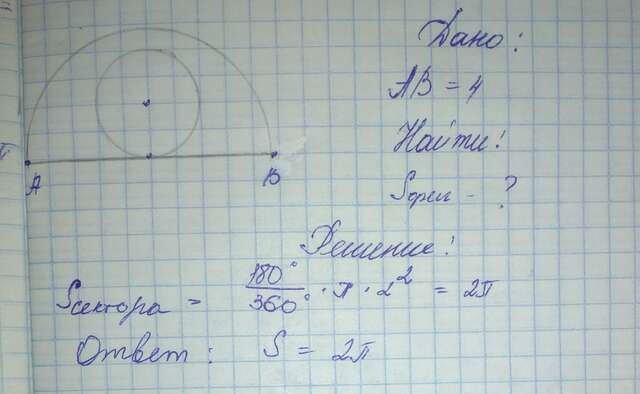 Дано:
AB = 4
Найти!
Sфиг - ?
A
B
Решение!
Sсектора = 180°/360° · π · 2² = 2π
Ответ: S = 2π